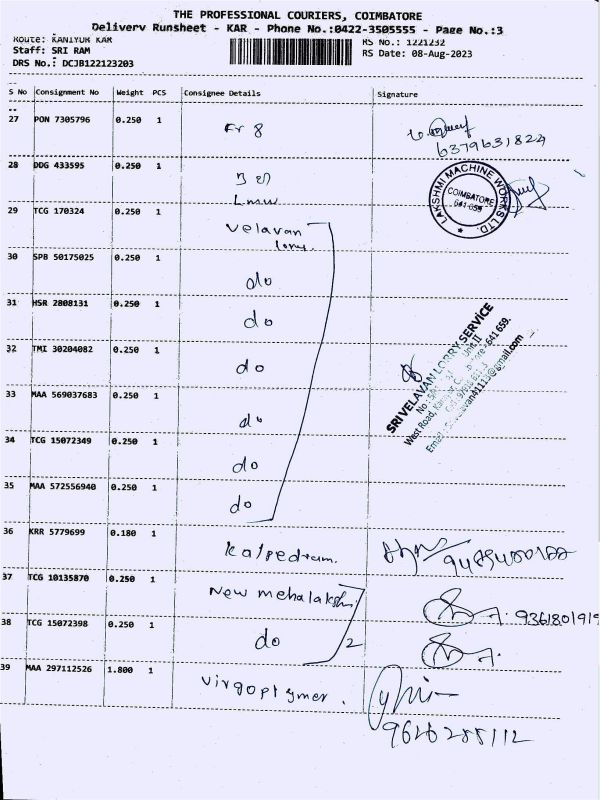 THE PROFESSIONAL COURIERS, COIMBATORE
Delivery Runsheet - KAR - Phone No.:0422-3505555 - Page No.:3
Route: KANIYUR KAR
RS No.: 1221232
Staff: SRI RAM
RS Date: 08-Aug-2023
DRS No.: DCJB122123203
S No Consignment No Weight PCS Consignee Details Signature
27 PON 7305796 0.250 1
6379631824
28 DOG 433595 0.250 1
Lmw
LAKSHMI MACHINE WORKS LTD.
COIMBATORE
641-659
29 TCG 170324 0.250 1 Velavan
lorry.
30 SPB 50175025 0.250 1 do
31 HSR 2808131 0.250 1 do
32 TMI 30204082 0.250 1 do
SRI VELAVAN LORRY SERVICE
33 MAA 569037683 0.250 1 do
34 TCG 15072349 0.250 1 do
35 MAA 572556940 0.250 1 do
36 KRR 5779699 0.180 1
37 TCG 10135870 0.250 1 New mehalakshmi
9361801919
38 TCG 15072398 0.250 1 do 2
39 MAA 297112526 1.800 1 Virgopolymer.
9626288112